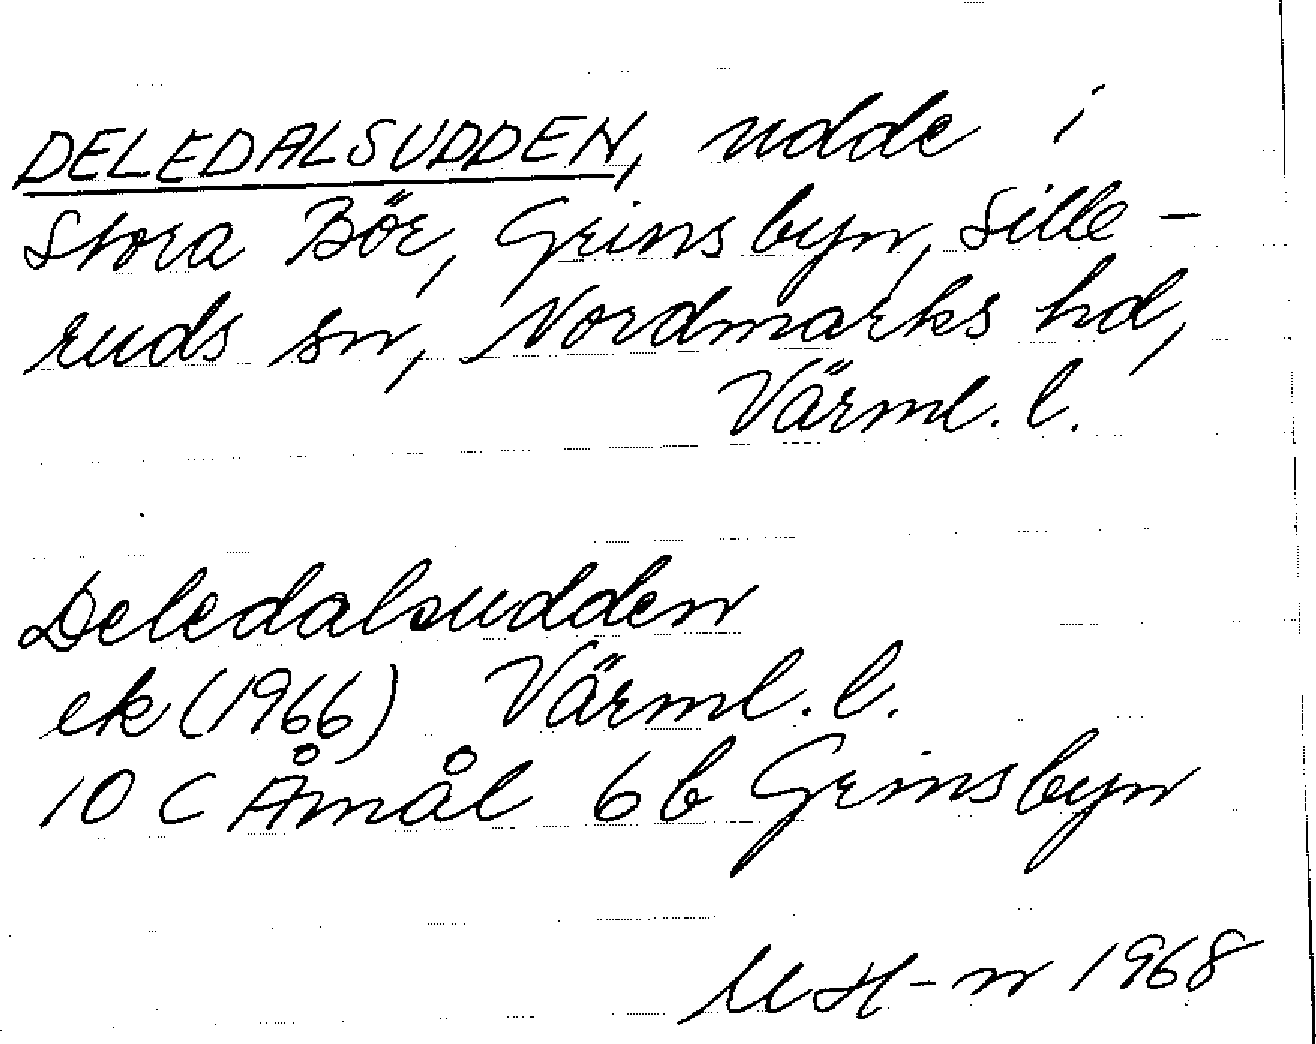 DELEDALSUDDEN, udde i
Stora Bör, Grinsbyn, Sille-
ruds sn, Nordmarks hd,
Värml. l.
Deledalsudden
ek (1966) Värml. l.
10 C Åmål 6b Grinsbyn
MH-n 1968